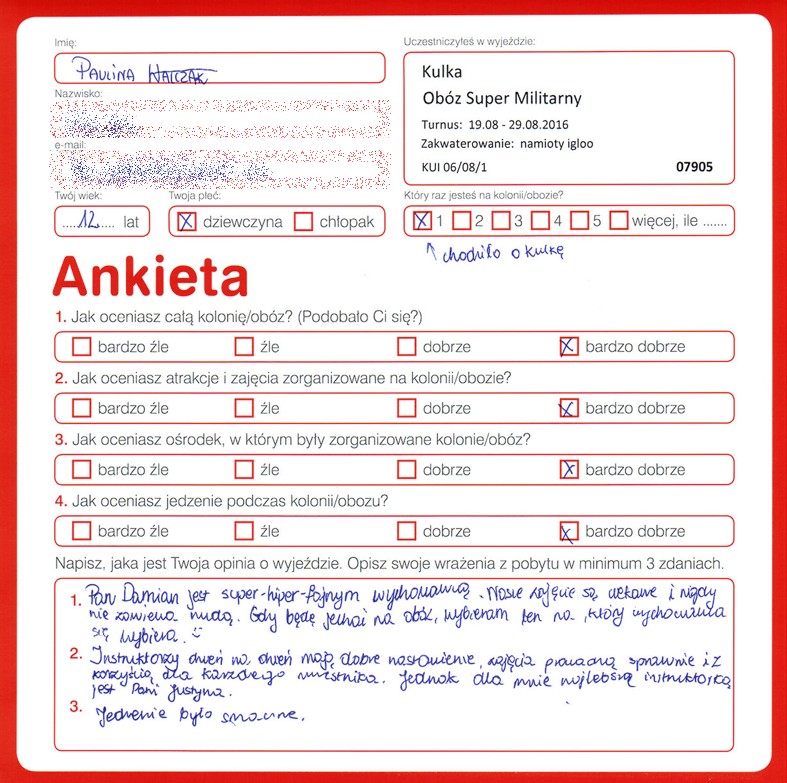 Imię:
PAULINA WALCZAK
Nazwisko:
e-mail:
Twój wiek:
....12.... lat
Twoja płeć:
X dziewczyna chłopak
Uczestniczyłeś w wyjeździe:
Kulka
Obóz Super Militarny
Turnus: 19.08 - 29.08.2016
Zakwaterowanie: namioty igloo
KUI 06/08/1 07905
Który raz jesteś na kolonii/obozie?
X 1 2 3 4 5 więcej, ile .......
↑ chodziło o kulkę
Ankieta
1. Jak oceniasz całą kolonię/obóz? (Podobało Ci się?)
bardzo źle źle dobrze X bardzo dobrze
2. Jak oceniasz atrakcje i zajęcia zorganizowane na kolonii/obozie?
bardzo źle źle dobrze X bardzo dobrze
3. Jak oceniasz ośrodek, w którym były zorganizowane kolonie/obóz?
bardzo źle źle dobrze X bardzo dobrze
4. Jak oceniasz jedzenie podczas kolonii/obozu?
bardzo źle źle dobrze X bardzo dobrze
Napisz, jaka jest Twoja opinia o wyjeździe. Opisz swoje wrażenia z pobytu w minimum 3 zdaniach.
1. Pan Damian jest super-hiper-fajnym wychowawcą. Nasze zajęcie są ciekawe i nigdy
nie zawiewa nudą. Gdy będę jechać na obóz, wybieram ten na, który wychowawca
się wybiera. :)
2. Instruktorzy dzień na dzień mają dobre nastawienie, zajęcia prowadzą sprawnie i z
korzyścią dla każdego uczestnika. Jednak dla mnie najlepszą instruktorką
jest Pani Justyna.
3. Jedzenie było smaczne.